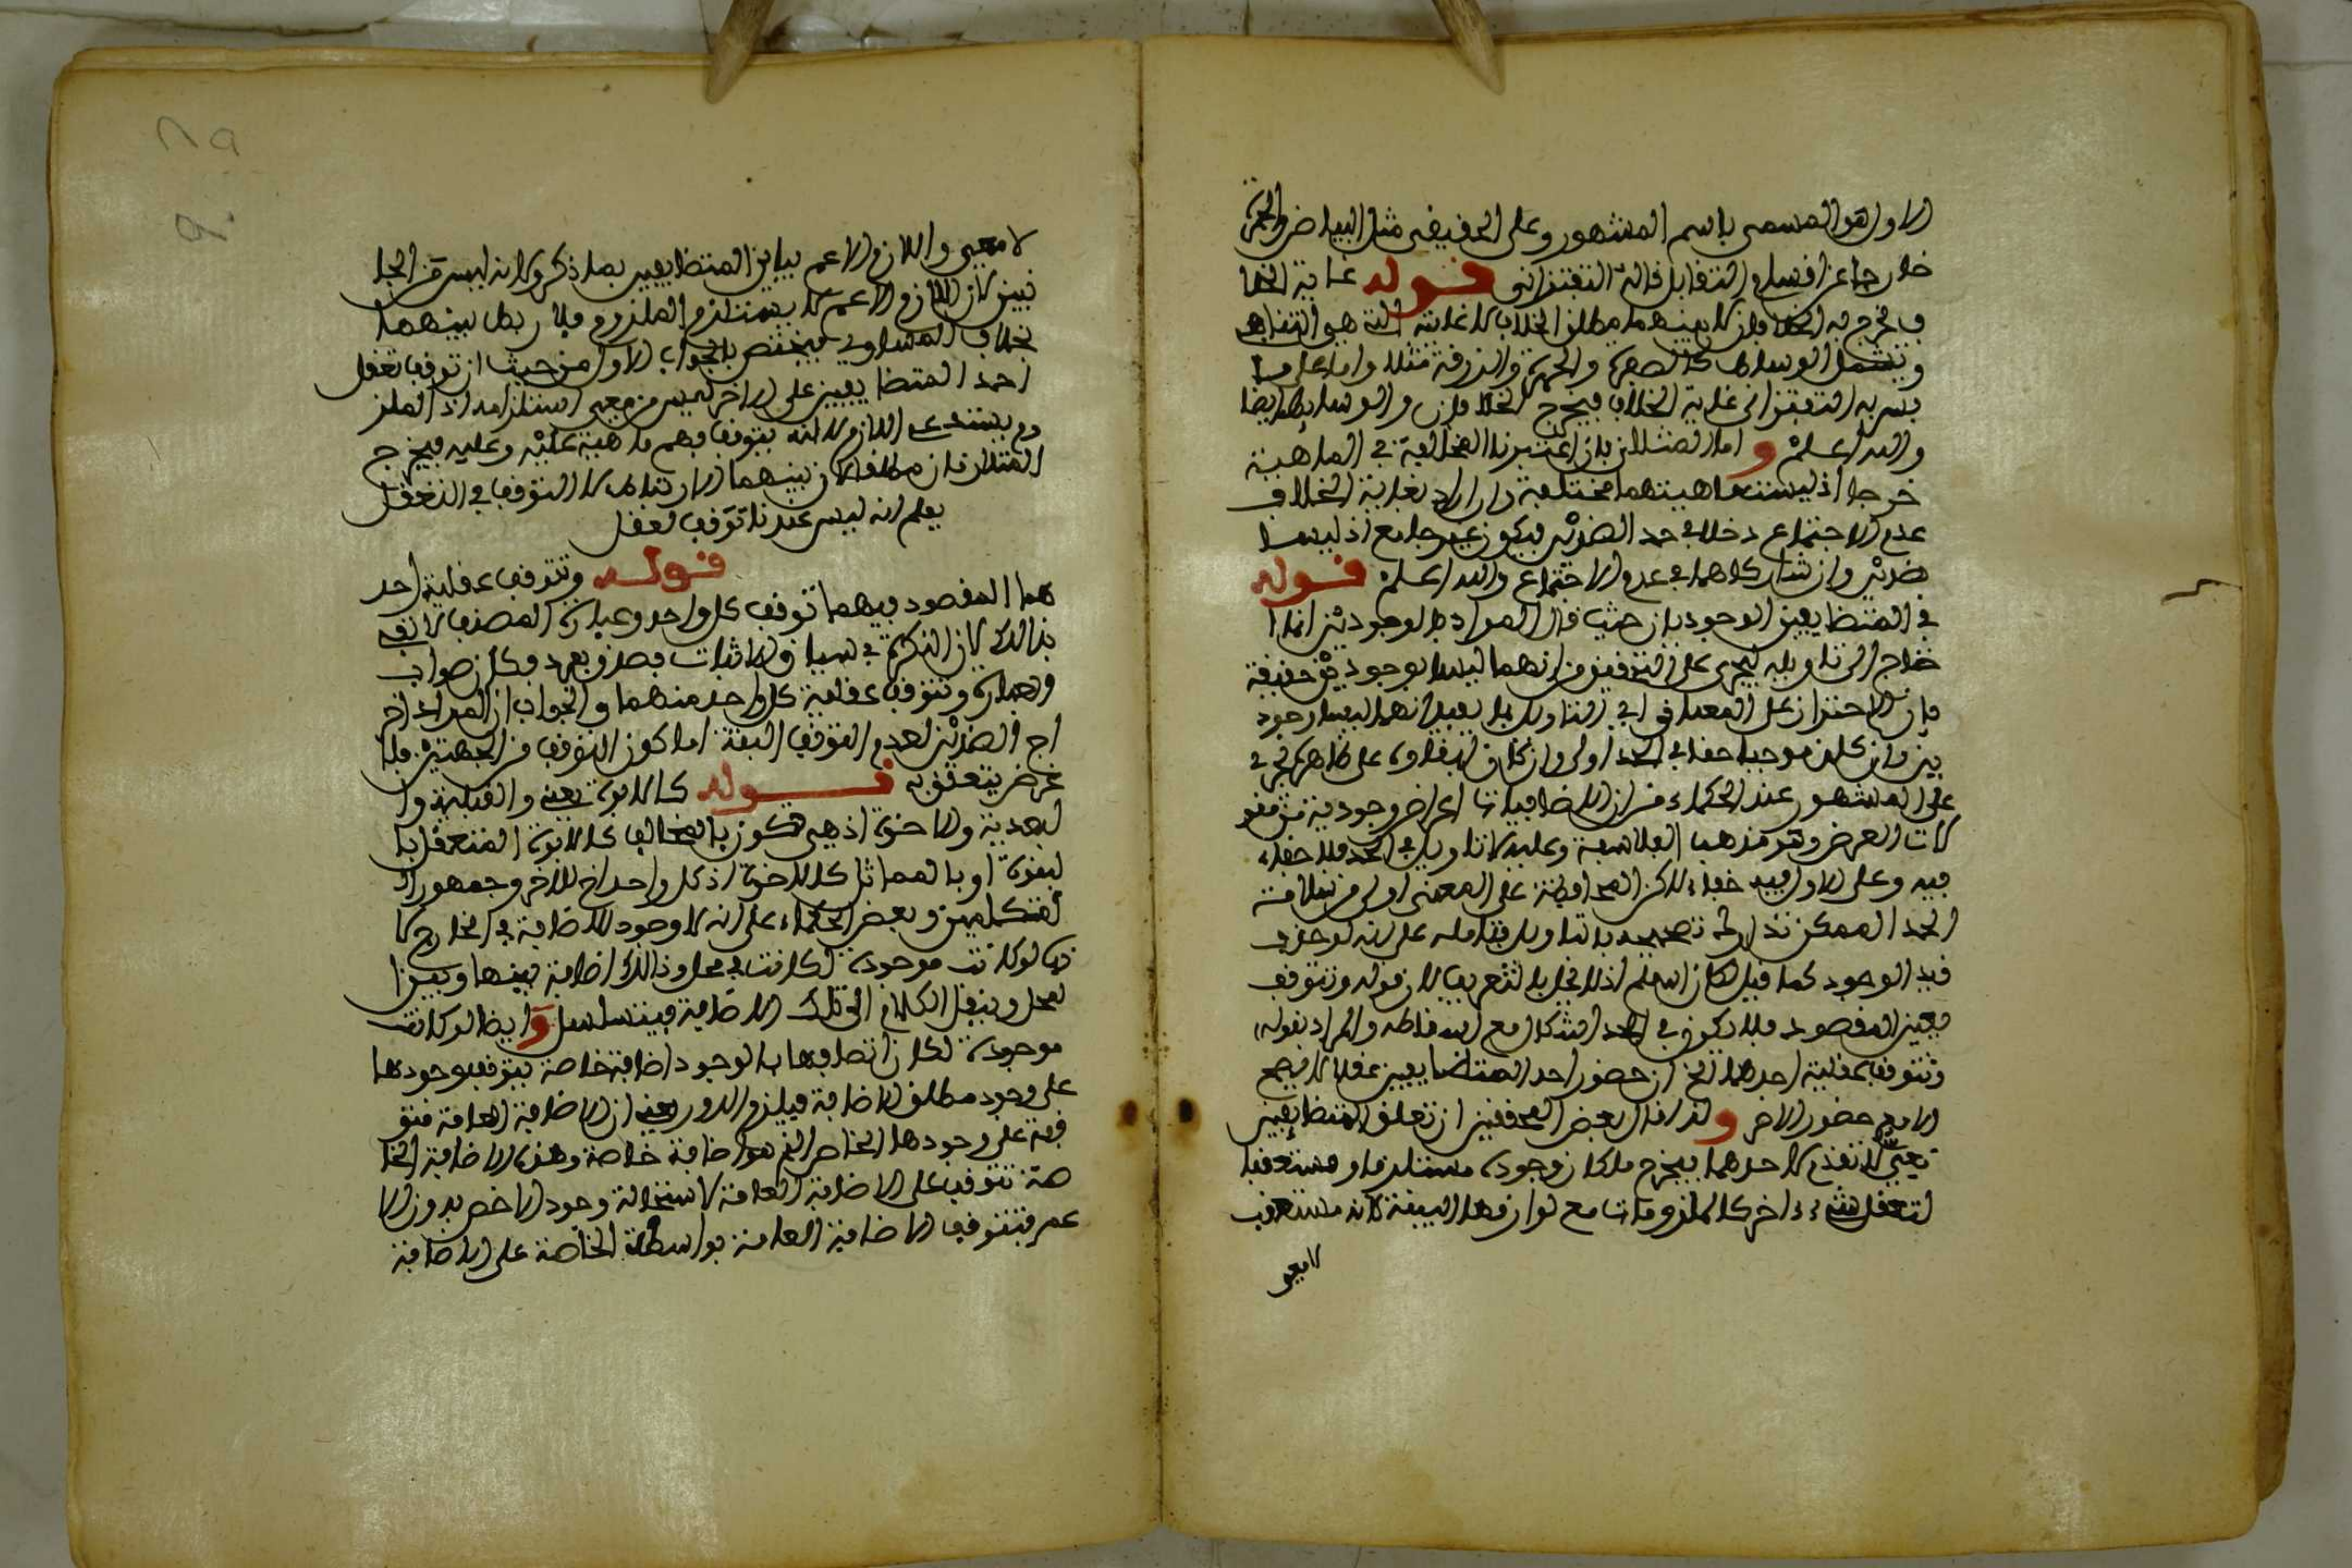 الاول هو المسمى باسم المشهور وعلى الحقيقى مثل البياض والحمرة
خارجا عن اقسام التقابل قاله التفتزانى قوله غاية الخلا
ف يخرج به الخلافان لان بينهما مطلق الخلاف لا غايته التى هي التضاد
ويشمل الوسايط كالصفرة والحمرة والزرقة مثلا واما على ما
فسر به التفتزانى غاية الخلاف فيخرج الخلافان والوسايط ايضا
والله اعلم واما المثلان بان اعتبرنا المخالفة في الماهية
خرجا اذ ليست ماهيتهما مختلفة وان اريد بغاية الخلاف
عدم الاجتماع دخلا في حد الضدين فيكون غير جامع اذ ليسا
ضدين وان شاركاهما في عدم الاجتماع والله اعلم قوله
في المتضايفين الوجوديان حيث قال المراد بالوجوديين انما ا
حتاج الى تاويله ليجرى على التحقيق من انهما ليسا بوجوديين حقيقة
فان الاحتراز على المعنى في التاويل بما يفيد انهما ليسا وجود
يين وان كان موجبا خفا في الحد اولى وان كان ابقاوه على ظاهره يجرى
على المشهور عند الحكماء من ان الاضافيات اعراض وجودية من مقو
لات العرض وهو مذهب الفلاسفة وعليه لا تاويل في الحد فلا خفاء
فيه وعلى الاول فيه خفاء لاكن المحافظة على المعنى اولى من سلامة
الحد الممكن تدارك تصحيحه بالتاويل فتامله على انه لو حذف
قيد الوجود كما قيل لكان اسلم اذ لا يخل بالتعريف لان قوله وتتوقف
يعين المقصود فلا يكون في الحد اشكال مع اسقاطه والمراد بقوله
وتتوقف عقلية احدهما الخ ان حضور احد المتضايفين عقلا لا يصح
الا مع حضور الاخر ولذا قال بعض المحققين ان تعلق المتضايفين
معى لا تقدم لاحدهما فيخرج ما كان وجوده مستلزما ومستعقبا
لتعقل شيء ءاخر كالملزومات مع لوازمها البينة لانه مستعقب
لا معى
لا معى واللازم الاعم يباين المتضايفين بما ذكر ولانه ليس من الجا
نبين لان اللازم الاعم لا يستلزم الملزوم فلا ربط بينهما
بخلاف المساوي فيختص بالجواب الاول من حيث ان توقف تعقل
احد المتضايفين على الاخر ليس من معنى استلزامه اذ الملز
وم يستدعى اللازم لا انه يتوقف فهم ماهيته عليه وعليه فيخرج
المثلان فان مطلق كان بينهما الارتباط لا التوقف في التعقل
يعلم انه ليس عندنا توقف تعقل
قوله وتتوقف عقلية احد
هما المقصود فيهما توقف كل واحد وعبارة المصنف لا تفى
بذالك لان النكرة في سياق الاثبات فصدق بفرد فكان صواب
العبارة وتتوقف عقلية كل واحد منهما والجواب ان المراد اخر
اج الضدين لعدم التوقف البتة اما كون التوقف من الجهتين فلا
غرض يتعلق به قوله كالابوة يعنى والقبلية وا
لبعدية والاخوة اذ هى تكون بالمخالف كالابوة المتعقل با
لبنوة او بالمماثل كالاخوة اذ كل واحد اخ للاخر وجمهور ا
لمتكلمين وبعض الحكماء على انه لا وجود للاضافة في الخارج لا
نها لو كانت موجودة لكانت في محل وذالك اضافة بينها وبين ا
لمحل وينقل الكلام الى تلك الاضافة فيتسلسل وايضا لو كانت
موجودة لكان اتصافها بالوجود اضافة خاصة يتوقف وجودها
على وجود مطلق الاضافة فيلزم الدور يعنى ان الاضافة العامة متو
قفة على وجودها الخاص الذي هو اضافة خاصة وهذه الاضافة الخا
صة تتوقف على الاضافة العامة لاستحالة وجود الاخص بدون الا
عم فتتوقف الاضافة العامة بواسطة الخاصة على الاضافة